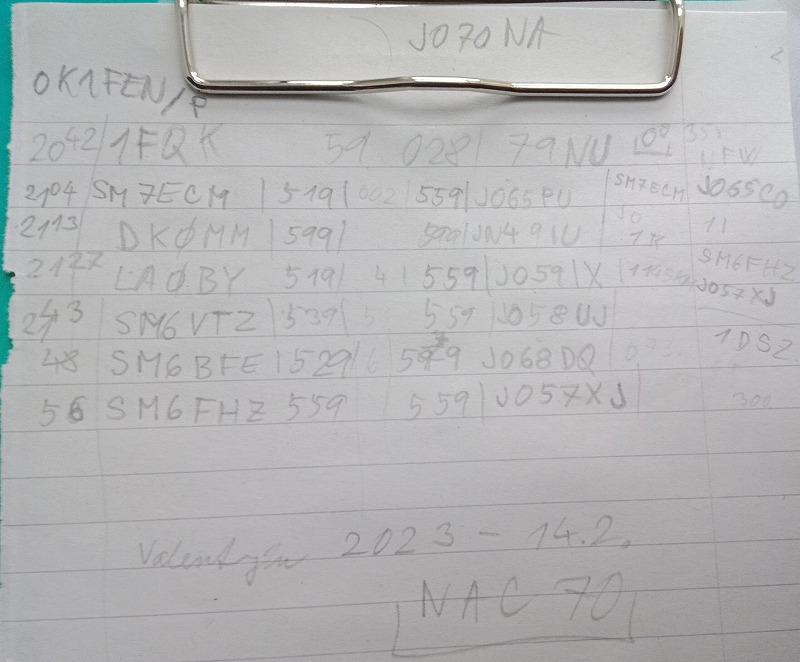 JO70NA
OK1FEN/P
2042 1FQK 59 028 79NU
2104 SM7ECM 519 002 559 JO65PU SM7ECM JO65CO
2113 DKØMM 599 599 JN49IU
2127 LAØBY 519 4 559 JO59IX SM6FHZ JO57XJ
2143 SM6VTZ 539 5 559 JO58UJ
48 SM6BFE 529 6 579 JO68DQ 1DSZ
56 SM6FHZ 559 559 JO57XJ 300
2023 - 14.2.
NAC 70